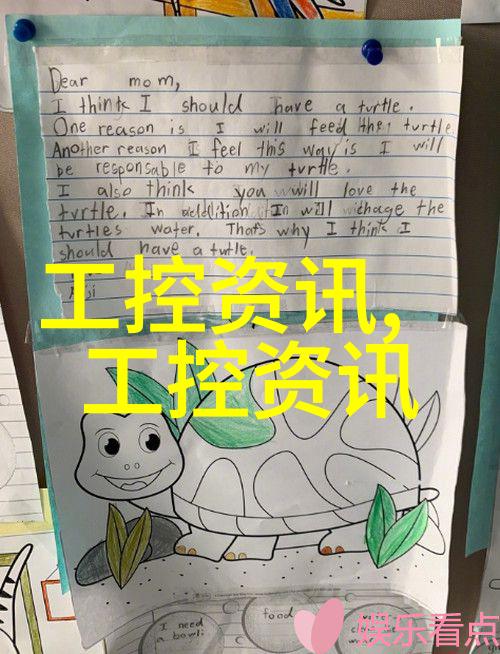 Dear mom,
I think I should have a turtle.
One reason is I will feed the turtle.
Another reason I feel this way is I will
be responsable to my turtle.
I also think you will love the
turtle. In addition I will change the
turtles water. That's why I think I
should have a turtle.
工控资讯,
工控资讯
I need
a bowl
food
娱乐看点